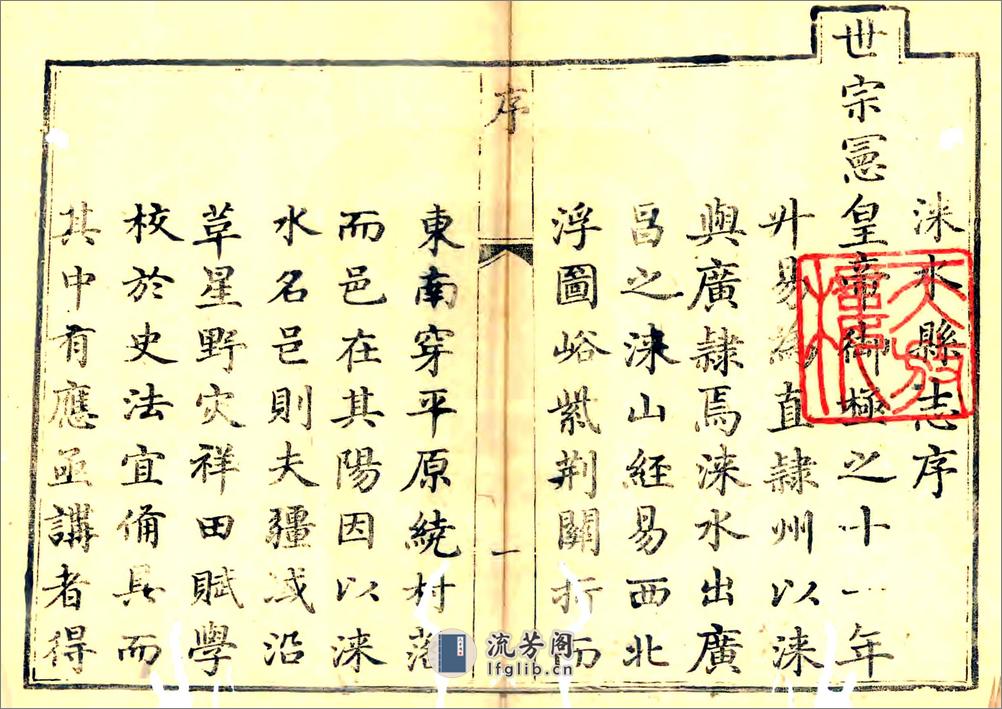 涞水縣志序
世宗憲皇帝御極之十一年
升易為直隸州以涞
與廣隸焉涞水出廣
昌之涞山經易西北
浮圖峪紫荆關折而
序
一
東南穿平原繞村落
而邑在其陽因以涞
水名邑則夫疆域沿
革星野灾祥田賦學
校於史法宜俻具而
其中有應亟講者得
流芳阁
lfglib.cn